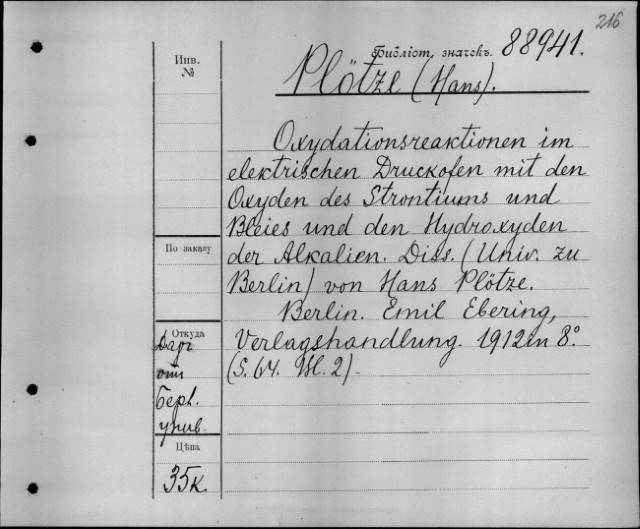 216
Библіот. значекъ. 88941.
Инв.
№
Plötze (Hans).
Oxydationsreaktionen im
elektrischen Druckofen mit den
Oxyden des Strontiums und
Bleies und den Hydroxyden
der Alkalien. Diss. (Univ. zu
Berlin) von Hans Plötze.
Berlin. Emil Ebering,
Verlagshandlung. 1912 in 8°.
(S. 64. Bl. 2).
По заказу
Откуда
Даръ
отъ
Берл.
унив.
Цѣна
35к.